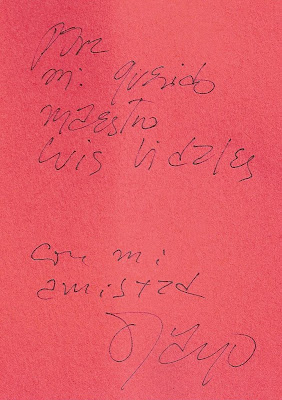 Para
mi querido
maestro
Luis Vidales
con mi
amistad